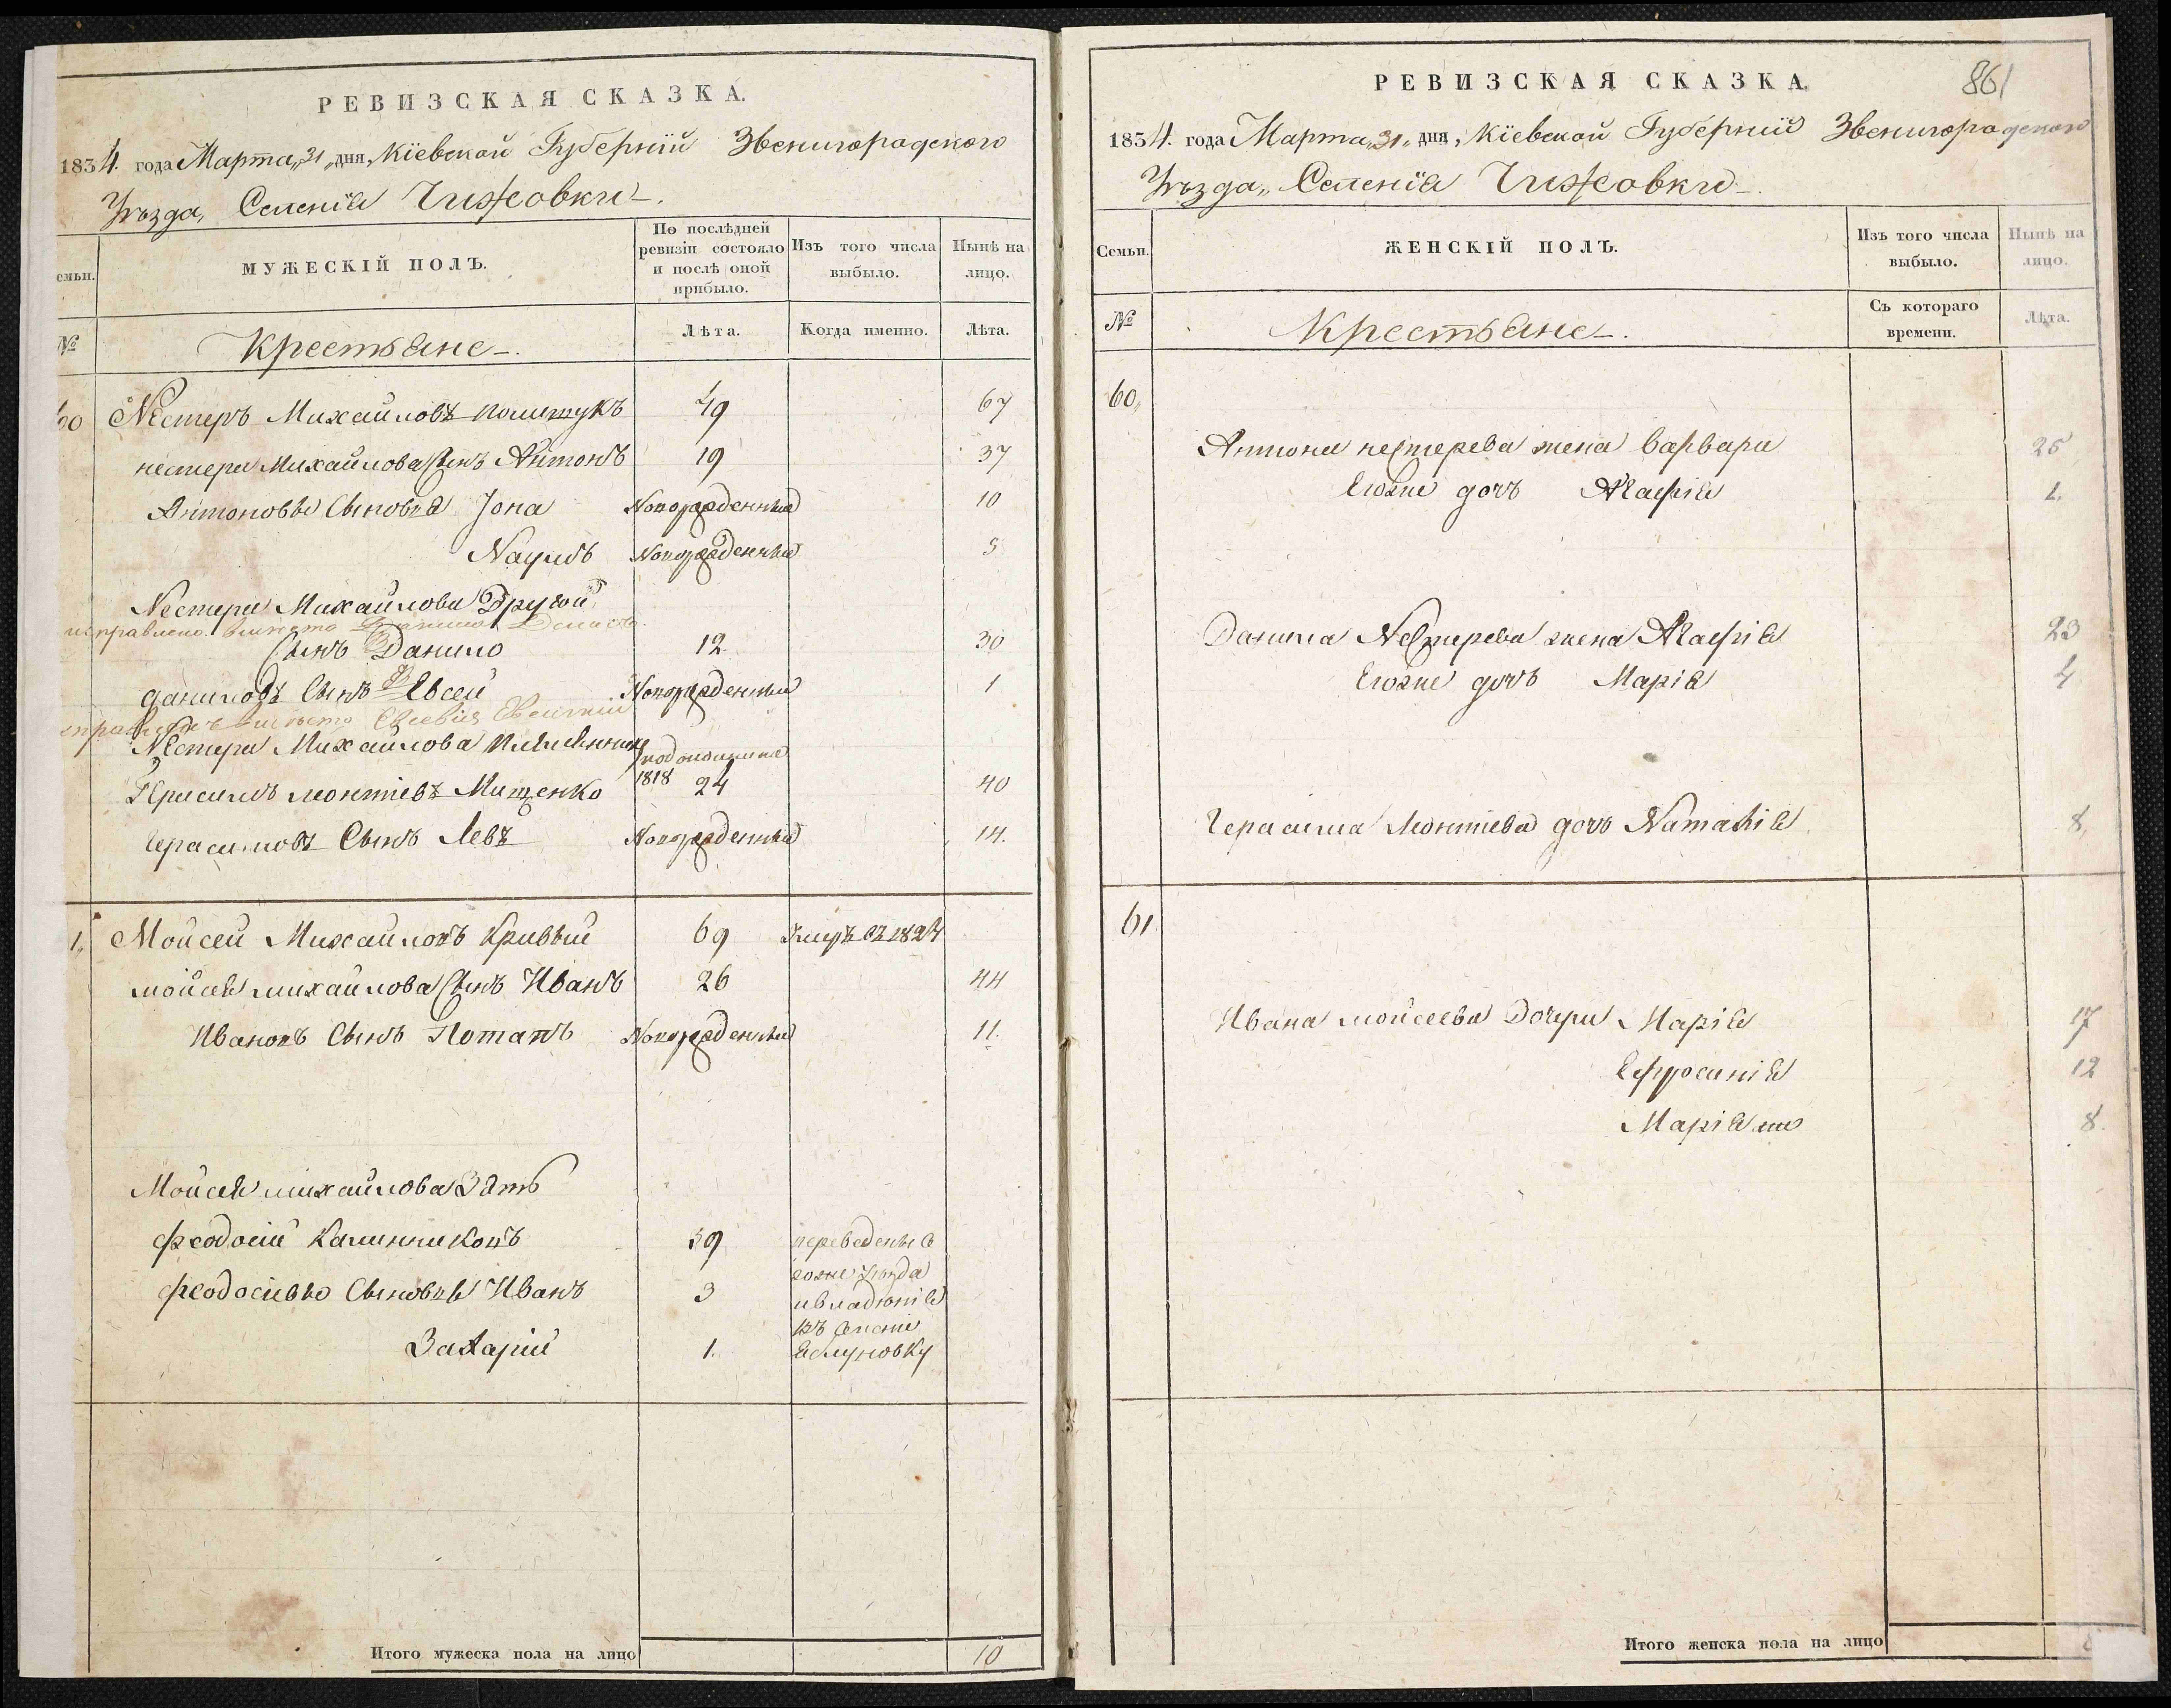 РЕВИЗСКАЯ СКАЗКА.
1834. года Марта „31„ дня, Кіевской Губерніи Звенигородского
Уѣзда, Селенія Чижовки.
емьи.
МУЖЕСКІЙ ПОЛЪ.
По послѣдней ревизіи состояло и послѣ оной прибыло.
Изъ того числа выбыло.
Нынѣ на лицо.
№
Крестьяне
Лѣта.
Когда именно.
Лѣта.
60 Нестеръ Михайловъ Полищукъ 49 67
нестера Михайлова Сынъ Антонъ 19 37
Антоновы Сыновья Іона Новорожденный 10
Наумъ Новорожденный 5
Нестера Михайлова Другой
исправлено вместо
Сынъ Данило 12 30
даниловъ Сынъ Евсей Новорожденный 1
вместо
Нестера Михайлова племянникъ
Герасимъ леонтіевъ Мищенко 1818 24 40
Герасимовъ Сынъ Левъ Новорожденный 14.
1. Мойсей Михайловъ Кривый 69 Умеръ въ 1824
мойсея михайлова Сынъ Иванъ 26 44
Ивановъ Сынъ Потапъ Новорожденный 11.
Мойсея михайлова Зять
феодосій Калинниковъ 39 переведены въ
тогоже
феодосіевы Сыновья Иванъ 3 и владенія
въ Селеніе
Захарій 1.
Итого мужеска пола на лицо 10
РЕВИЗСКАЯ СКАЗКА. 861
1834. года Марта „31„ дня, Кіевской Губерніи Звенигородского
Уѣзда„ Селенія Чижовки.
Семьи.
ЖЕНСКІЙ ПОЛЪ.
Изъ того числа выбыло.
Нынѣ на лицо.
№
Крестьяне
Съ котораго времени.
Лѣта.
60
Антона нестерева жена Варвара 25
Егоже дочь Агафія 1.
Данила Нестерева жена Агафія 23
Егоже дочь Марія 4
Герасима Леонтіева дочь Наталія 8,
61
Ивана мойсеева Дочери Марія 17
Ефросинія 12
Маріяна 8.
Итого женска пола на лицо